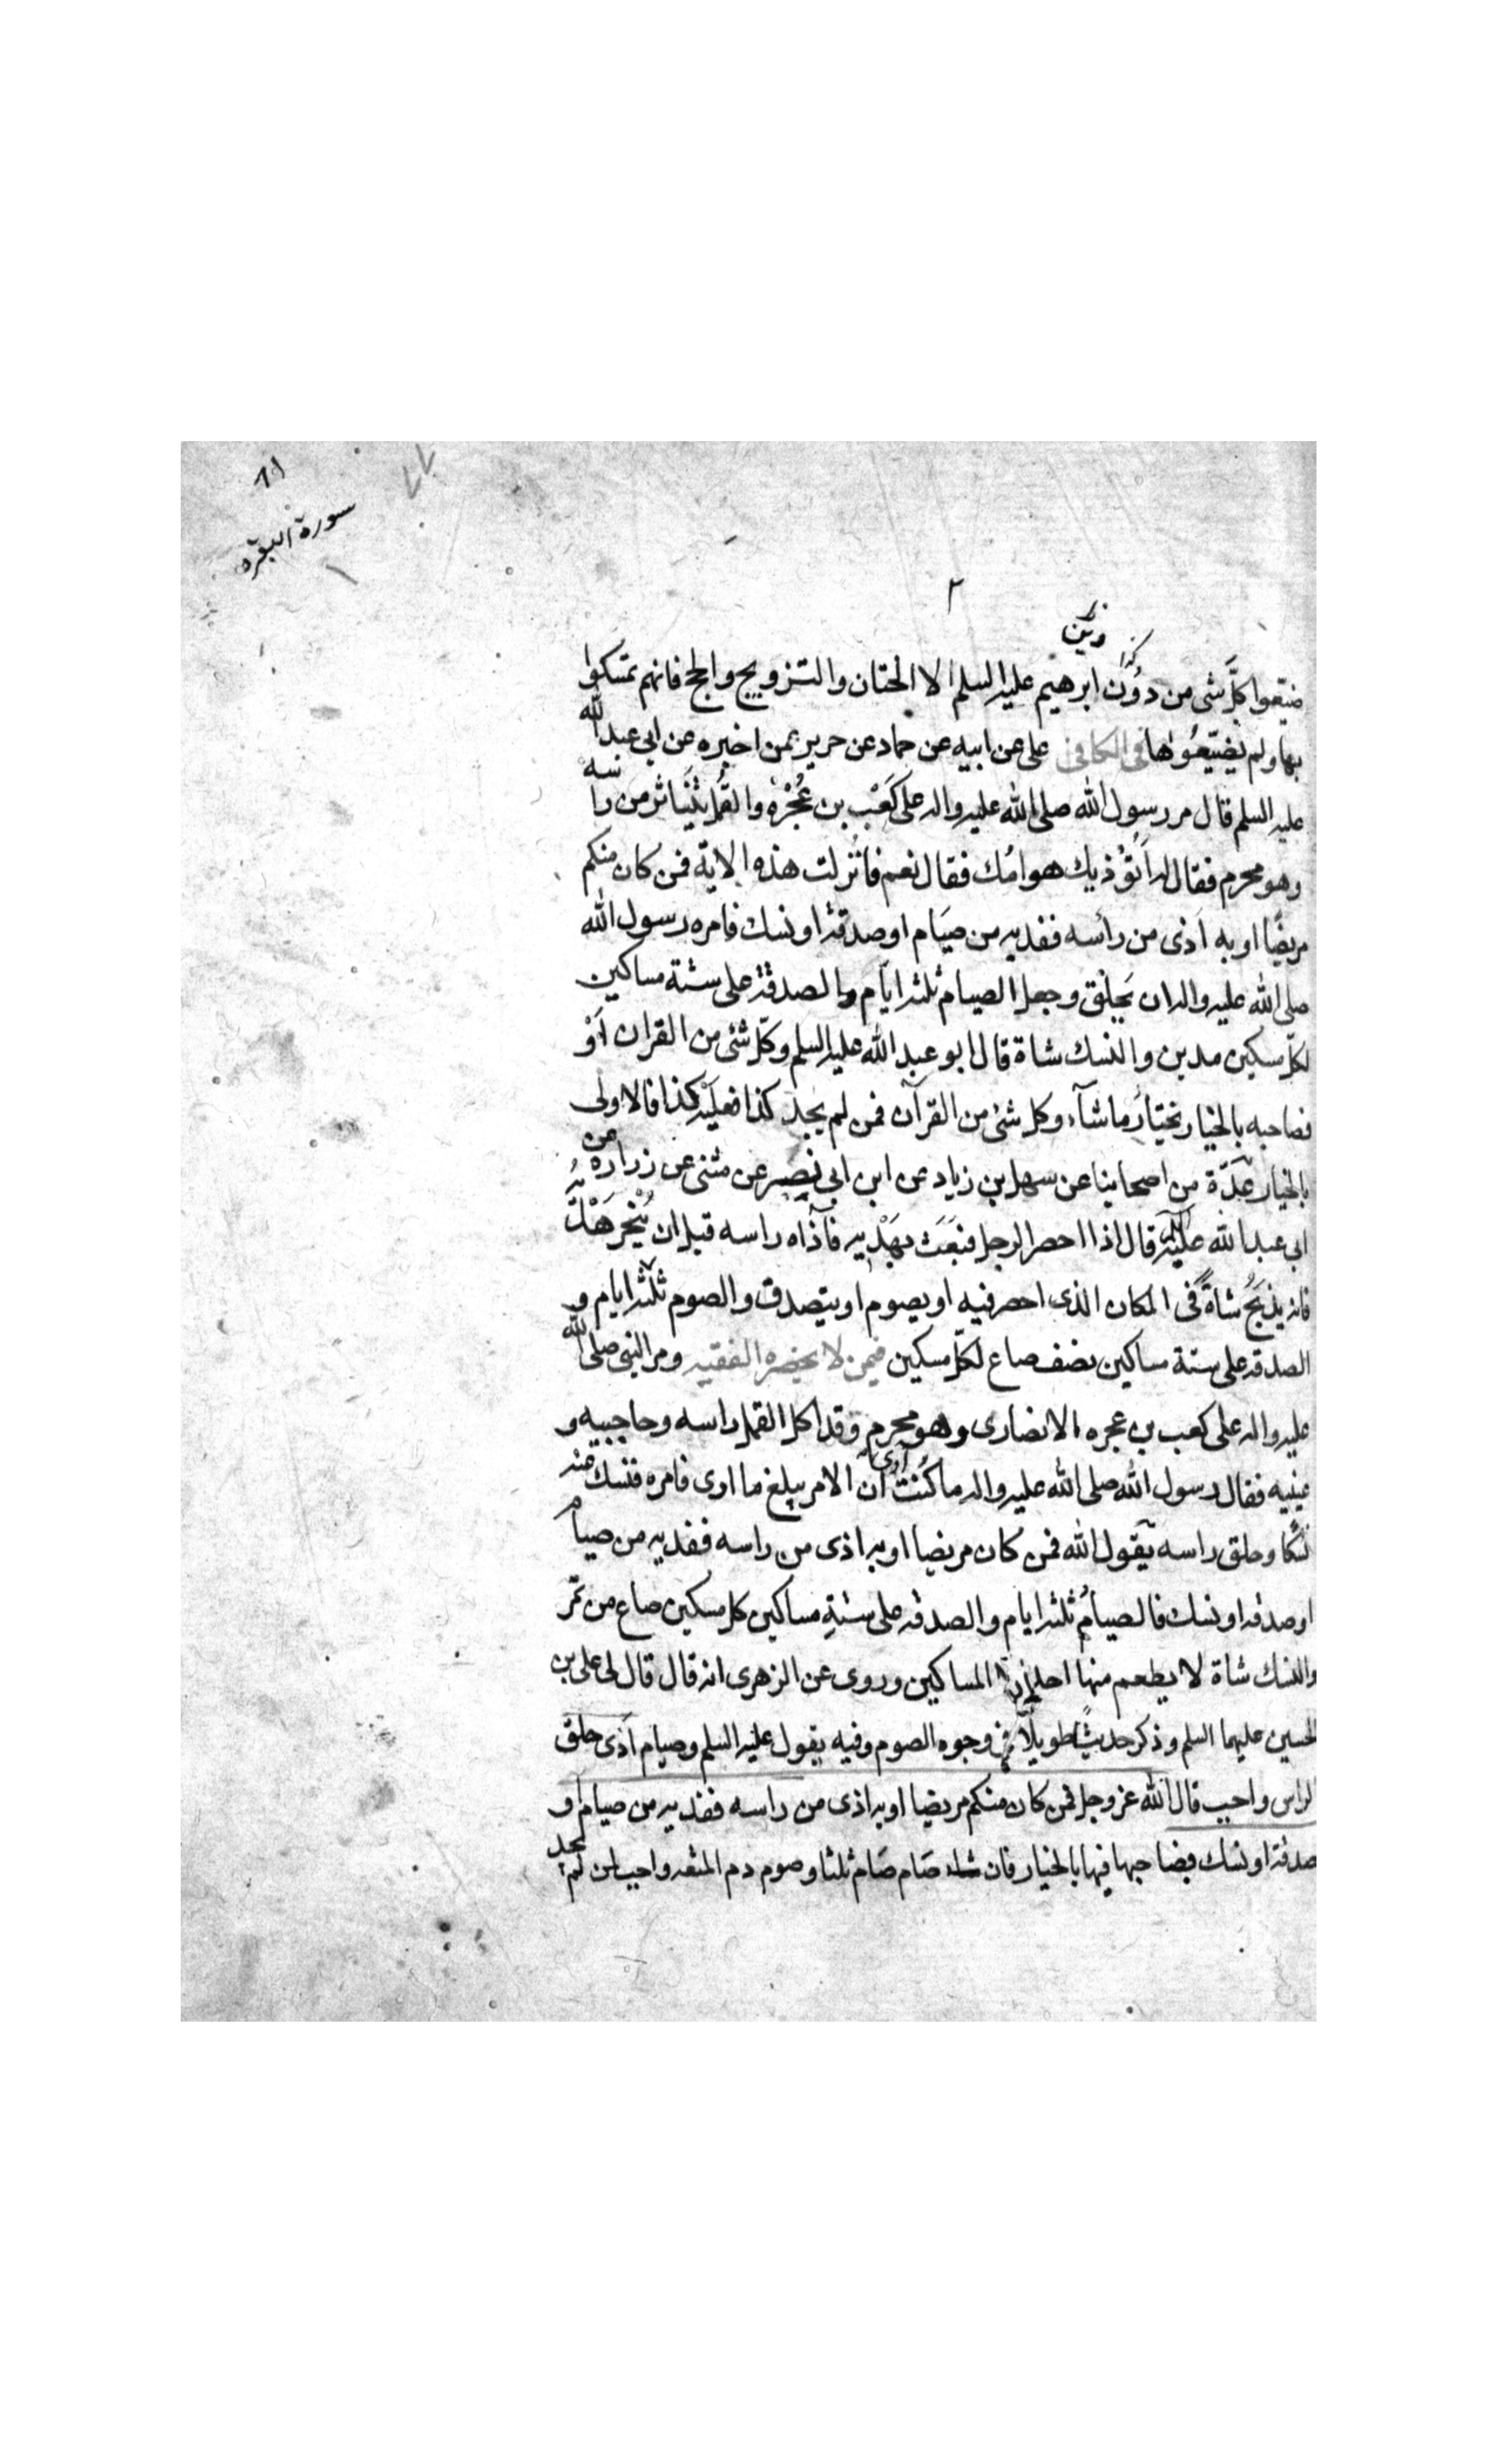 سورة البقرة
ضيعوا كلَّ شى من دون ابرهيم عليه السلم الا الختان والتزويج والحج فانهم تمسكوا
بها ولم يضيّعُوها فى الكافى على عن ابيه عن حماد عن حريز عمن اخبره عن ابى عبد الله
عليه السلم قال مر رسول الله صلى الله عليه واله على كَعْب بن عُجْرَه والقُمل يتناثر من راسه
وهو محرم فقال له اَتؤذيك هوامّك فقال نعم فانزلت هذه الاية فمن كان منكم
مريضًا او به اَذى من رأسه ففديه من صيَام او صدقة او نسك فامره رسول الله
صلى الله عليه واله ان يَحلق وجعل الصيام ثلثه ايّام والصدقة على ستة مساكين
لكلّ مسكين مدين والنسك شاة قال ابو عبد الله عليه السلم وكلّ شئ من القران اَوْ
فصاحبه بالخيار يختارُ ما شآء وكل شئ من القرآن فمن لم يجدْ كذا فعليْه كذا فالاولى
بالخيار عِدّة من اصحابنا عن سهل بن زياد عن ابن ابى نصير عن مثنى عن زراره عن
ابى عبد الله عليه السلم قال اذا احصر الرجل فبَعَث بهَدْيه فآذاه راسه قبل ان يُنْحر هَدْيُه
فانه يذبَحُ شاةً فى المكان الذى احصر فيه او يصوم او يتصدق والصوم ثلثه ايام و
الصدقه على ستة مساكين نصف صاع لكلّ مسكين فيمن لا يحضره الفقيه ومر النبى صلى الله
عليه واله على كعب بن عجره الانصارى وهو محرم وقد اكل القمل راسه وحاجبيه و
عينيه فقال رسول الله صلى الله عليه واله ما كُنْتُ ارى ان الامر يبلغ ما ارى فامره فنسك عنه
نُسُكا وحلق راسه يقول الله فمن كان مريضا او به اذى من راسه ففديه من صيام
او صدقه او نسك فالصيامُ ثلثه ايام والصدقه على ستةِ مساكين كل مسكين صاع من تمْر
والنسك شاة لا يطعم منها احد الا المساكين وروى عن الزهرى انه قال قال لى على بن
الحسين عليهما السلم وذكر حديثًا طويلًا فى وجوه الصوم وفيه يقول عليه السلم وصيام اَذى حلق
الراس واجب قال الله عز وجل فمن كان منكم مريضا او به اذى من راسه ففديه من صيام او
صدقة او نسك فصاحبها فيها بالخيار فان شاء صَام صَام ثلثا وصوم دم المتعه واجب لمن لم يجد